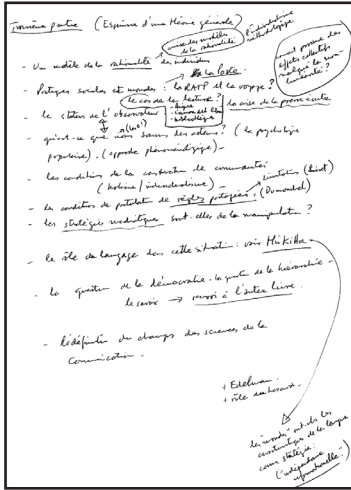 Troisième partie (Esquisse d'une théorie générale)
- Un modèle de la rationalité des individus
crise des modèles de la rationalité
l'individualisme méthodologique
- Pratiques sociales et mondes : la RATP et la voyage ?
La Poste
le cas de la lecture ?
- le statut de l'observateur
la crise de la presse écrite
- qu'est-ce que nous savons des acteurs ? (la psychologie
populaire). (approche phénoménologique) -
- les conditions de la construction de communautés
(holisme / individualisme) -
- les conditions de postulation de règles partagées. (Dumouchel)
- les stratégies médiatiques sont-elles de la manipulation ?
- le rôle du langage dans cette situation : voir Hintikka
- la question de la démocratie. la question de la hiérarchie -
le savoir → renvoi à l'autre livre.
- Redéfinition du champs des sciences de la
Communication.
+ Edelman.
+ rôle des
les "mondes" ont-ils les
caractéristiques de la langue
comme stratégie.
("indépendance
informationnelle")